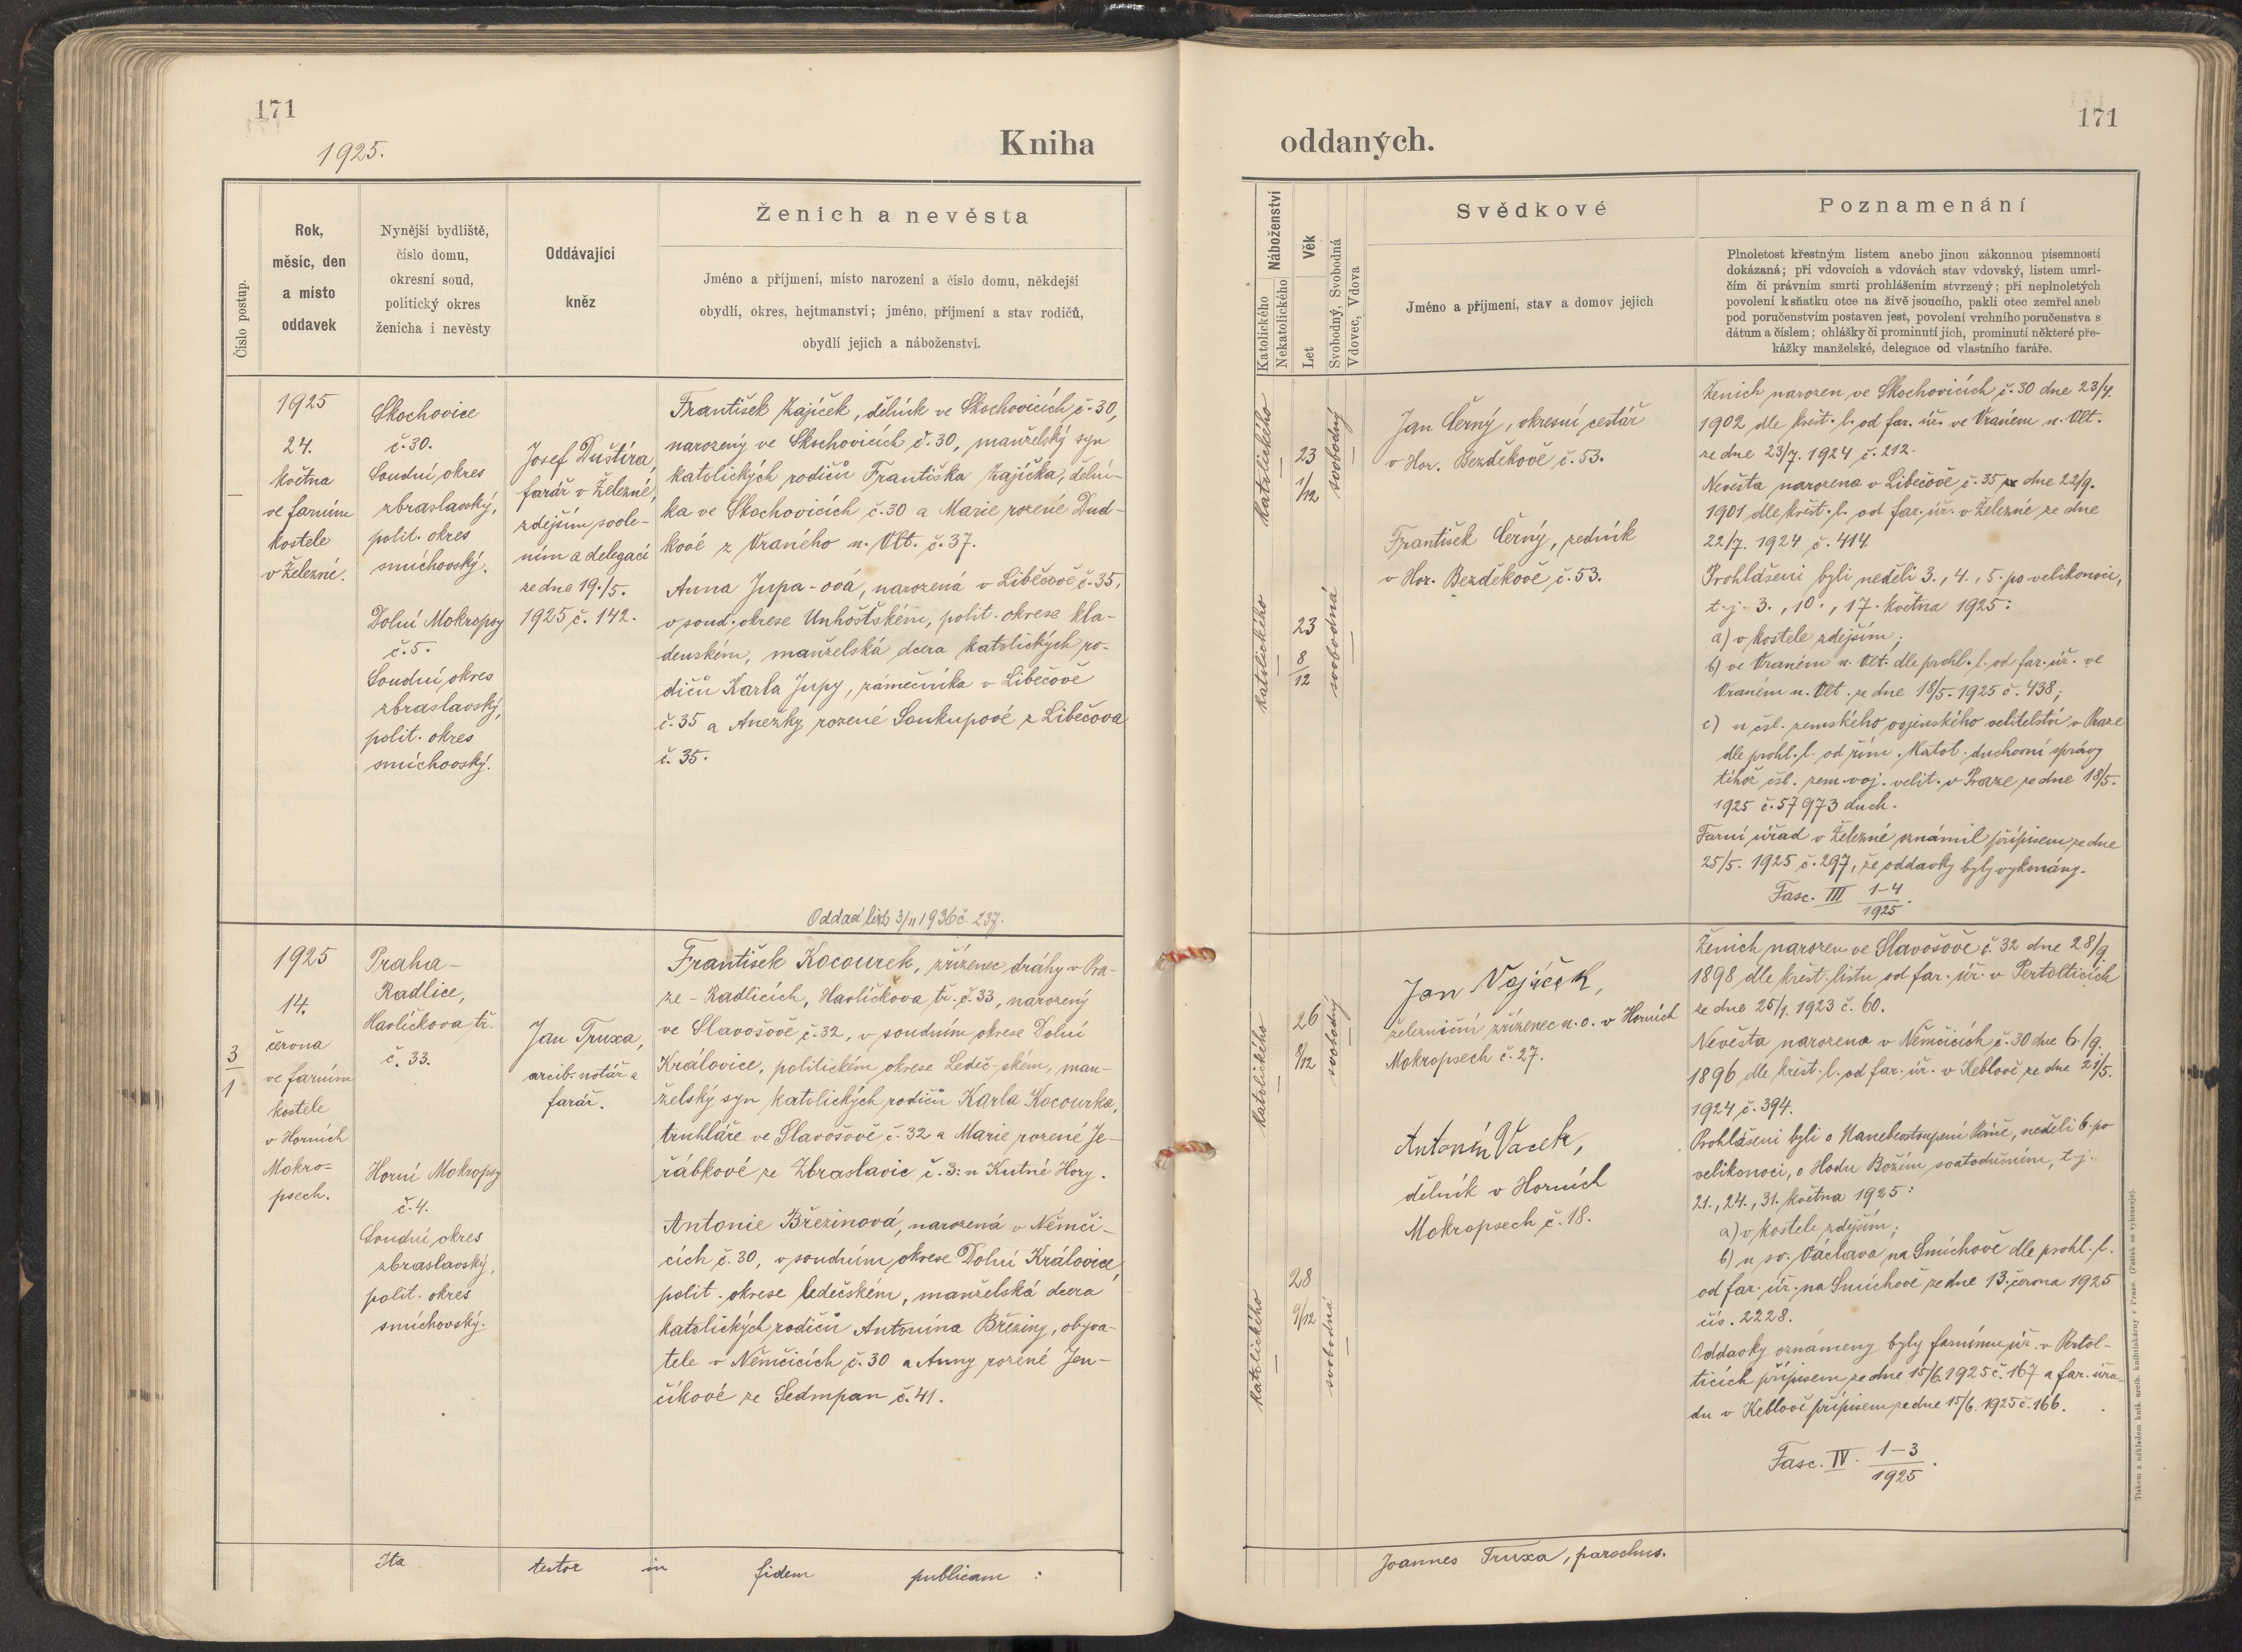 171
1925.
Kniha
Číslo postup.
Rok,
měsíc, den
a místo
oddavek
Nynější bydliště,
číslo domu,
okresní soud,
politický okres
ženicha i nevěsty
Oddávající
kněz
Ženich a nevěsta
Jméno a příjmení, místo narození a číslo domu, někdejší
obydlí, okres, hejtmanství; jméno, příjmení a stav rodičů,
obydlí jejich a náboženství.
—
1925
24.
května
ve farním
kostele
v Železné.
Skochovice
č. 30.
Soudní okres
zbraslavský,
polit. okres
smíchovský.
Dolní Mokropsy
č. 5.
Soudní okres
zbraslavský,
polit. okres
smíchovský.
Josef Duštíra,
farář v Železné,
zdejším svole-
ním a delegací
ze dne 19./5.
1925 č. 142.
František Zajíček, dělník ve Skochovicích č. 30,
narozený ve Skochovicích č. 30, manželský syn
katolických rodičů Františka Zajíčka, dělní-
ka ve Skochovicích č. 30 a Marie rozené Dud-
kové z Vraného n. Vlt. č. 37.
Anna Jupa-ová, narozená v Libečově č. 35,
v soud. okrese Unhošťském, polit. okrese kla-
denském, manželská dcera katolických ro-
dičů Karla Jupy, zámečníka v Libečově
č. 35 a Anežky rozené Soukupové z Libečova
č. 35.
Oddací list 3/II 1936 č. 237.
3
1
1925
14.
června
ve farním
kostele
v Horních
Mokro-
psech.
Praha-
Radlice,
Havlíčkova tř.
č. 33.
Horní Mokropsy
č. 4.
Soudní okres
zbraslavský,
polit. okres
smíchovský.
Jan Truxa,
arcib. notář a
farář.
František Kocourek, zřízenec dráhy v Pra-
ze - Radlicích, Havlíčkova tř. č. 33, narozený
ve Slavošově č. 32, v soudním okrese Dolní
Královice, politickém okrese Ledeč-ském, man-
želský syn katolických rodičů Karla Kocourka,
truhláře ve Slavošově č. 32 a Marie rozené Je-
řábkové ze Zbraslavic č. 3: u Kutné Hory.
Antonie Březinová, narozená v Němči-
cích č. 30, v soudním okrese Dolní Královice,
polit. okrese ledečském, manželská dcera
katolických rodičů Antonína Březiny, obyva-
tele v Němčicích č. 30 a Anny rozené Jen-
číkové ze Sedmpan č. 41.
Ita testor in fidem publicam :
171
oddaných.
Náboženství
Katolického
Nekatolického
Věk
Let
Svobodný, Svobodná
Vdovec, Vdova
Svědkové
Jméno a příjmení, stav a domov jejich
Poznamenání
Plnoletost křestným listem anebo jinou zákonnou písemností
dokázaná; při vdovcích a vdovách stav vdovský, listem umrl-
čím či právním smrti prohlášením stvrzený; při neplnoletých
povolení k sňatku otce na živě jsoucího, pakli otec zemřel aneb
pod poručenstvím postaven jest, povolení vrchního poručenstva s
dátum a číslem; ohlášky či prominutí jich, prominutí některé pře-
kážky manželské, delegace od vlastního faráře.
katolického
—
23
1/12
svobodný
—
katolického
—
23
8
12
svobodná
—
Jan Černý, okresní cestář
v Hor. Bezděkově č. 53.
František Černý, zedník
v Hor. Bezděkově č. 53.
Ženich narozen ve Skochovicích č. 30 dne 23/4.
1902 dle křest. l. od far. úř. ve Vraném n. Vlt.
ze dne 23/7. 1924 č. 212.
Nevěsta narozena v Libečově č. 35 dne 22/9.
1901 dle křest. l. od far. úř. v Železné ze dne
22/7. 1924 č. 414
Prohlášeni byli neděli 3., 4., 5. po velikonoci,
t. j. 3., 10., 17. května 1925:
a) v kostele zdejším;
b) ve Vraném n. Vlt. dle prohl. l. od far. úř. ve
Vraném n. Vlt. ze dne 18/5. 1925 č. 438;
c) u čsl. zemského vojenského velitelství v Praze
dle prohl. l. od řím. katol. duchovní správy
téhož čsl. zem. voj. velit. v Praze ze dne 18/5.
1925 č. 57973 duch.
Farní úřad v Železné oznámil přípisem ze dne
25/5. 1925 č. 297, že oddavky byly vykonány.
Fasc. III 1-4
1925.
katolického
—
26
9/12
svobodný
—
katolického
—
28
9/12
svobodná
—
Jan Vojáček,
železniční zřízenec n. o. v Horních
Mokropsech č. 27.
Antonín Vacek,
dělník v Horních
Mokropsech č. 18.
Ženich narozen ve Slavošově č. 32 dne 28/9.
1898 dle křest. listu od far. úř. v Pertolticích
ze dne 25/1. 1923 č. 60.
Nevěsta narozena v Němčicích č. 30 dne 6./9.
1896 dle křest. l. od far. úř. v Keblově ze dne 21/5.
1924 č. 394.
Prohlášeni byli o Nanebevstoupení Páně, neděli 6. po
velikonoci, o Hodu Božím svatodušním, t. j.
21., 24., 31. května 1925:
a) v kostele zdejším;
b) u sv. Václava na Smíchově dle prohl. l.
od far. úř. na Smíchově ze dne 13. června 1925
čís. 2228.
Oddavky oznámeny byly farnímu úř. v Pertol-
ticích přípisem ze dne 15/6. 1925 č. 167 a far. úřa-
du v Keblově přípisem ze dne 15/6. 1925 č. 166.
Fasc. IV. 1-3
1925.
Joannes Truxa, parochus.
Tiskem a nákladem kníž. arcib. knihtiskárny v Praze. (Patisk se vyhrazuje).